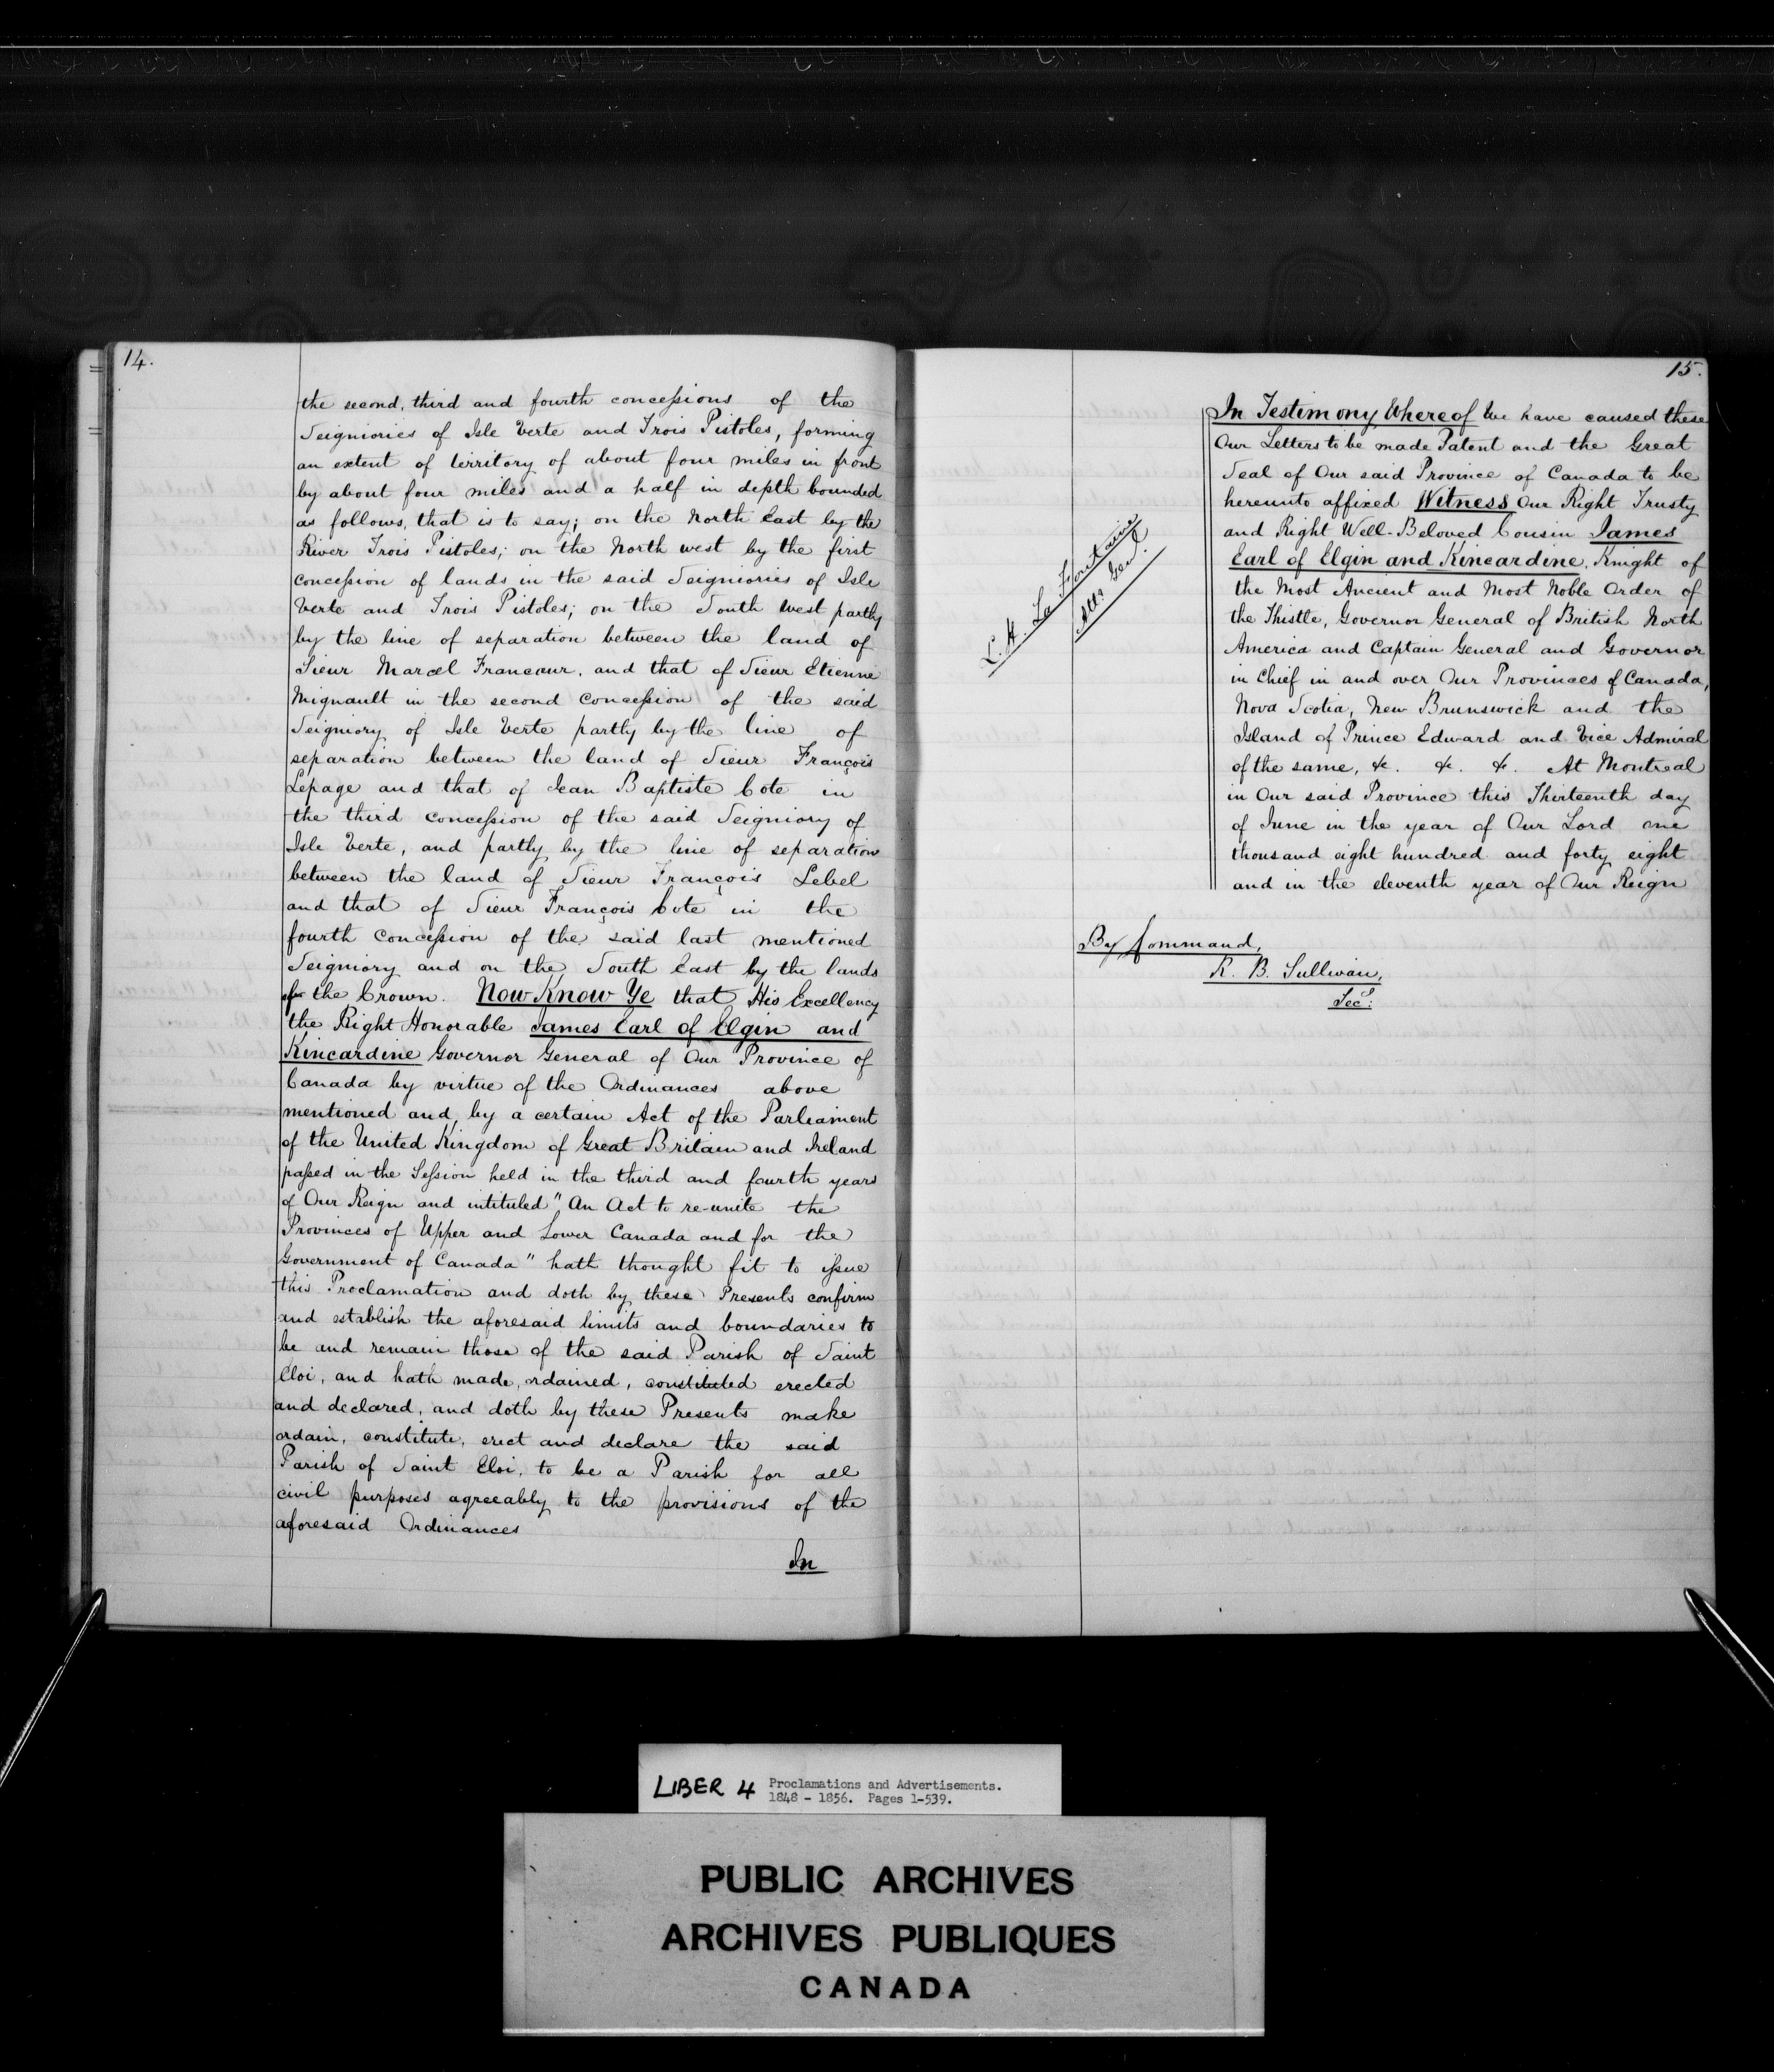 14.
the second, third and fourth concessions of the
Seigniories of Isle Verte and Trois Pistoles, forming
an extent of territory of about four miles in front
by about four miles and a half in depth bounded
as follows, that is to say; on the North East by the
River Trois Pistoles; on the North west by the first
concession of lands in the said Seigniories of Isle
Verte and Trois Pistoles; on the South West partly
by the line of separation between the land of
Sieur Marcel Francœur, and that of Sieur Etienne
Mignault in the second Concession of the said
Seigniory of Isle Verte partly by the line of
separation between the land of Sieur François
Lepage and that of Jean Baptiste Cote in
the third concession of the said Seigniory of
Isle Verte, and partly by the line of separation
between the land of Sieur François Lebel
and that of Sieur François Cote in the
fourth Concession of the said last mentioned
Seigniory and on the South East by the lands
of the Crown. Now Know Ye that His Excellency
the Right Honorable James Earl of Elgin and
Kincardine Governor General of Our Province of
Canada by virtue of the Ordinances above
mentioned and by a certain Act of the Parliament
of the United Kingdom of Great Britain and Ireland
passed in the Session held in the third and fourth years
of Our Reign and intituled "An Act to re-unite the
Provinces of Upper and Lower Canada and for the
Government of Canada" hath thought fit to issue
this Proclamation and doth by these Presents confirm
and establish the aforesaid limits and boundaries to
be and remain those of the said Parish of Saint
Eloi, and hath made, ordained, constituted erected
and declared, and doth by these Presents make
ordain, constitute, erect and declare the said
Parish of Saint Eloi, to be a Parish for all
civil purposes agreeably to the provisions of the
aforesaid Ordinances
In
15.
In Testimony Whereof We have caused these
Our Letters to be made Patent and the Great
Seal of Our said Province of Canada to be
hereunto affixed Witness Our Right Trusty
and Right Well-Beloved Cousin James
Earl of Elgin and Kincardine, Knight of
the Most Ancient and Most Noble Order of
the Thistle, Governor General of British North
America and Captain General and Governor
in Chief in and over Our Provinces of Canada,
Nova Scotia, New Brunswick and the
Island of Prince Edward and Vice Admiral
of the same, &. &. &. At Montreal
in Our said Province this Thirteenth day
of June in the year of Our Lord one
thousand eight hundred and forty eight
and in the eleventh year of Our Reign
L. H. La Fontaine
Atty Genl.
By Command,
R. B. Sullivan,
Secy:
LIBER 4 Proclamations and Advertisements.
1848 - 1856. Pages 1-539.
PUBLIC ARCHIVES
ARCHIVES PUBLIQUES
CANADA